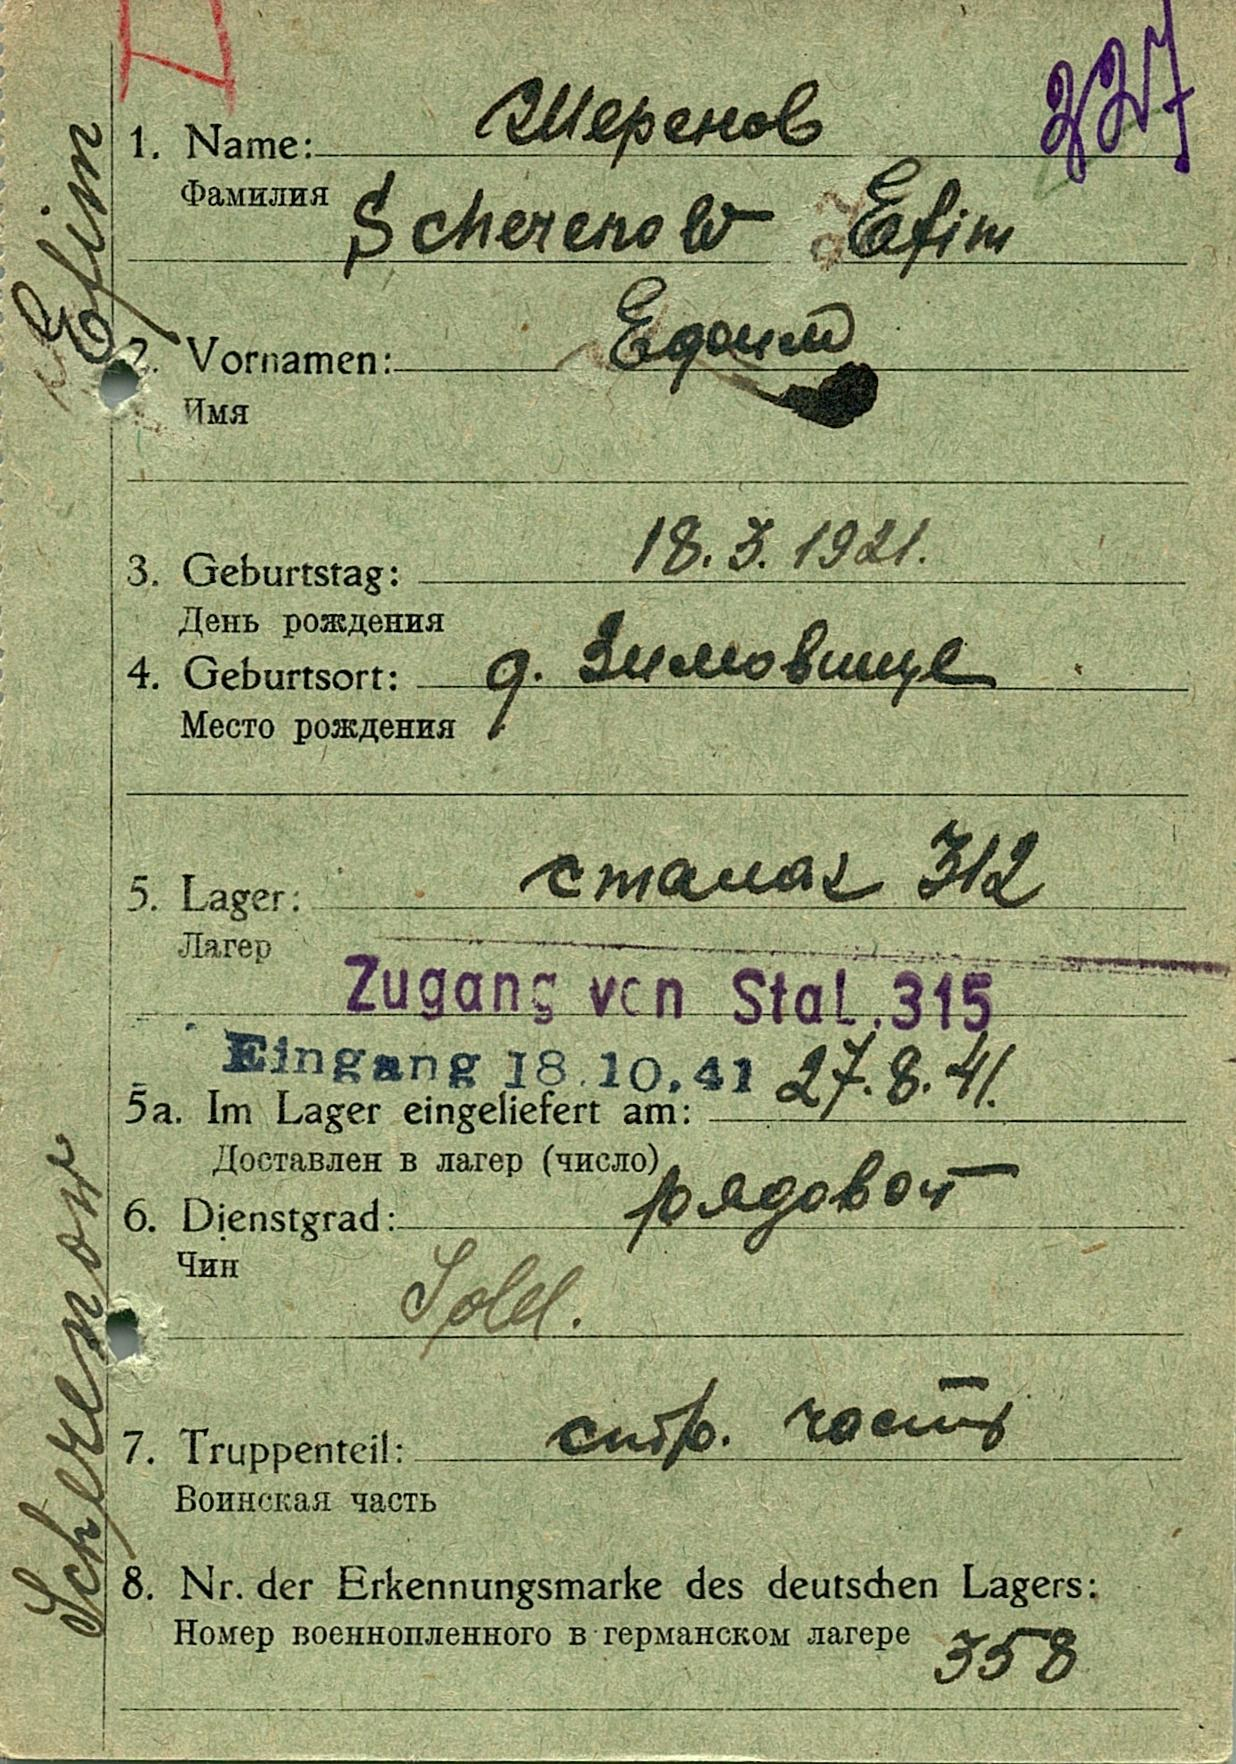 227
1. Name: Шеренов
Фамилия
Scherenow Efim
2. Vornamen: Ефим
Имя
3. Geburtstag: 18.3.1921.
День рождения
4. Geburtsort: д. Зимовище
Место рождения
5. Lager: сталаг 312
Лагер
Zugang von Stal. 315
Eingang 18.10.41 27.8.41.
5a. Im Lager eingeliefert am:
Доставлен в лагер (число)
6. Dienstgrad: рядовой
Чин
Sold.
7. Truppenteil: стр. часть
Воинская часть
8. Nr. der Erkennungsmarke des deutschen Lagers:
Номер военнопленного в германском лагере 358
Scherenow Efim